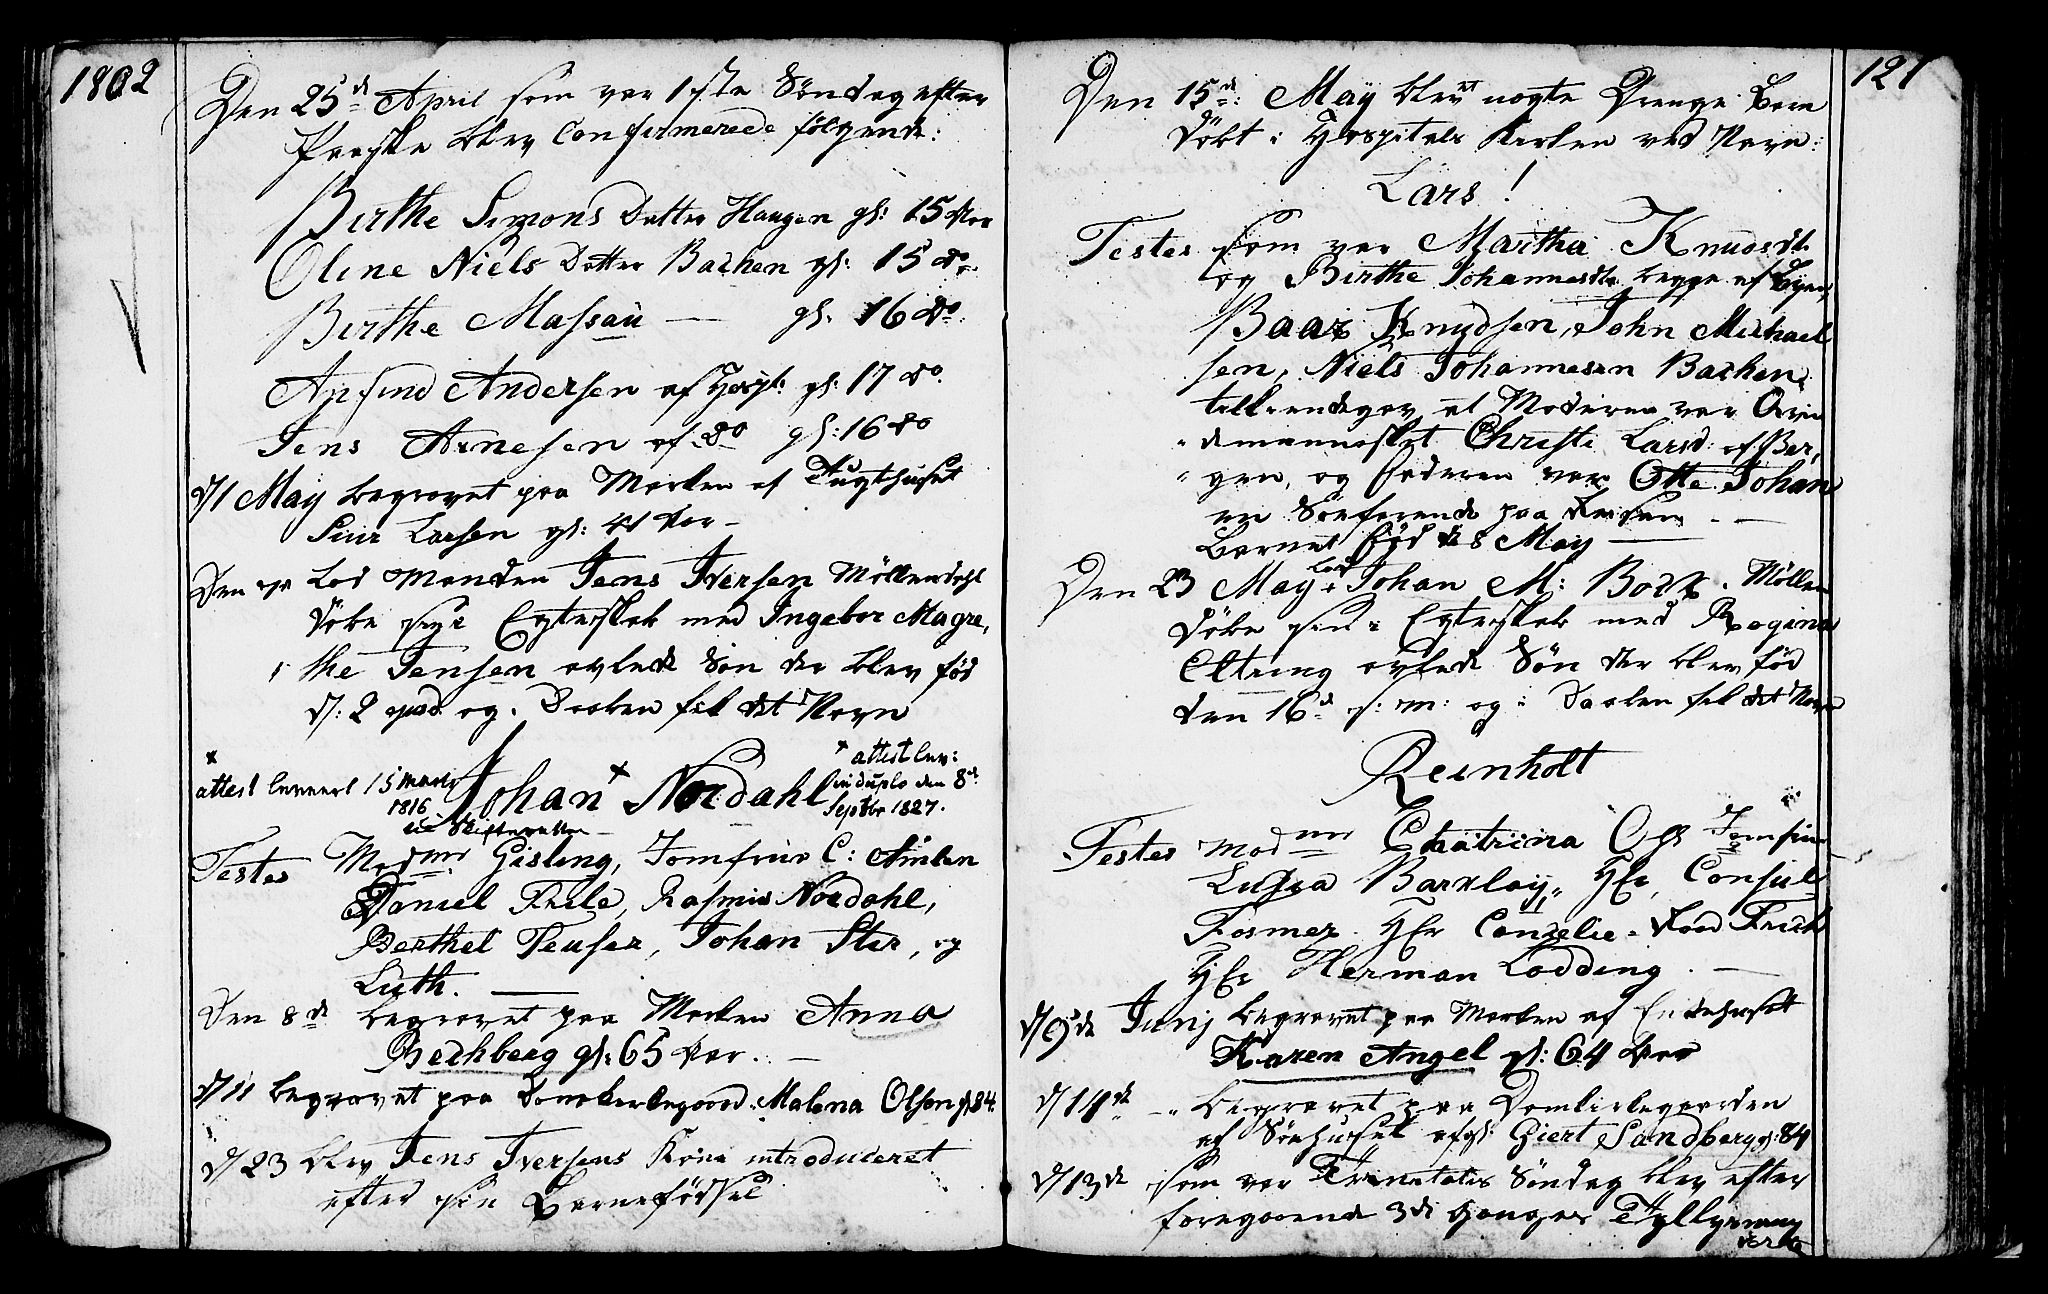 1802
Den 25d April som var 1ste Søndag efter
Paaske blev Confirmerede følgende:
Birthe Simons Datter Haugen gl: 15 Aar
Oline Niels Datter Bachen gl: 15 do
Birthe Massau — gl. 16 do
Andersen af Hospt: gl: 17 do
Jens Arnesen af do gl: 16 do
d/1 May begravet paa Marken af Tugthuset
Siur Larsen gl: 41 Aar –
Den Lod Manden Jens Iversen Möllendahl
döbe i Egteskab med Ingebor Magre,
the Jensen avlede Søn der blev fød
d: 2 og i Daaben fik det Navn
Johan Nordahl
attest leveret 15 Marts
1816
Skifteretten
attest lev:
in duplo den 8d
Septbr 1827.
Testes Madme Gisling, Jomfrue C: Amlen
Daniel Friele, Rasmus Nordahl,
Berthel Teuser, Johan Ster, og
Luth.
Den 8de begravet paa Marken Anna
Bechberg gl: 65 Aar. –
d/11 begravet paa Domkirkegaard. Malena Olsen gl 84.
d/23 blev Jens Iversens Kone introduceret
efter sin Barnefødsel
121
Den 15d: May blev et Drenge Barn
döbt i Hospitals Kirken ved Navn:
Lars!
Testes som var Martha Knudsdt.
og Birthe Johannesdtr begge af Byen,
Baar Knudsen, John Michael
sen, Niels Johannesen Bachen,
tilkiendegav at Moderen var Qvin
demennesket Christi Larsd: af Ber,
gen, og Faderen var Otte Johan
en Søefarende paa
Barnet fød d: 8 May —
Den 23 May Lod Johan M: Böck. Möllen
döbe sin i Egteskab med Regina
Eltring avlede Søn der blev fød
den 16d s: m: og i Daaben fik det Navn
Reinholt
Testes Madme Chatrina Jomfrue
Barclay, Hr, Consul
Fasmer. Hr Cancelie-Raad Frich
Hr Herman Lodding. —
d/9de Junij begravet paa Marken af Enkehuset
Karen Angel gl: 64 Aar
d/11de – begravet paa Domkirkegaarden
af Søehuset afgl: Giert Sandberg gl: 84
d/13de som var Trinitatis Søndag blev efter
foregaaende 3de Ganges Tyllysning